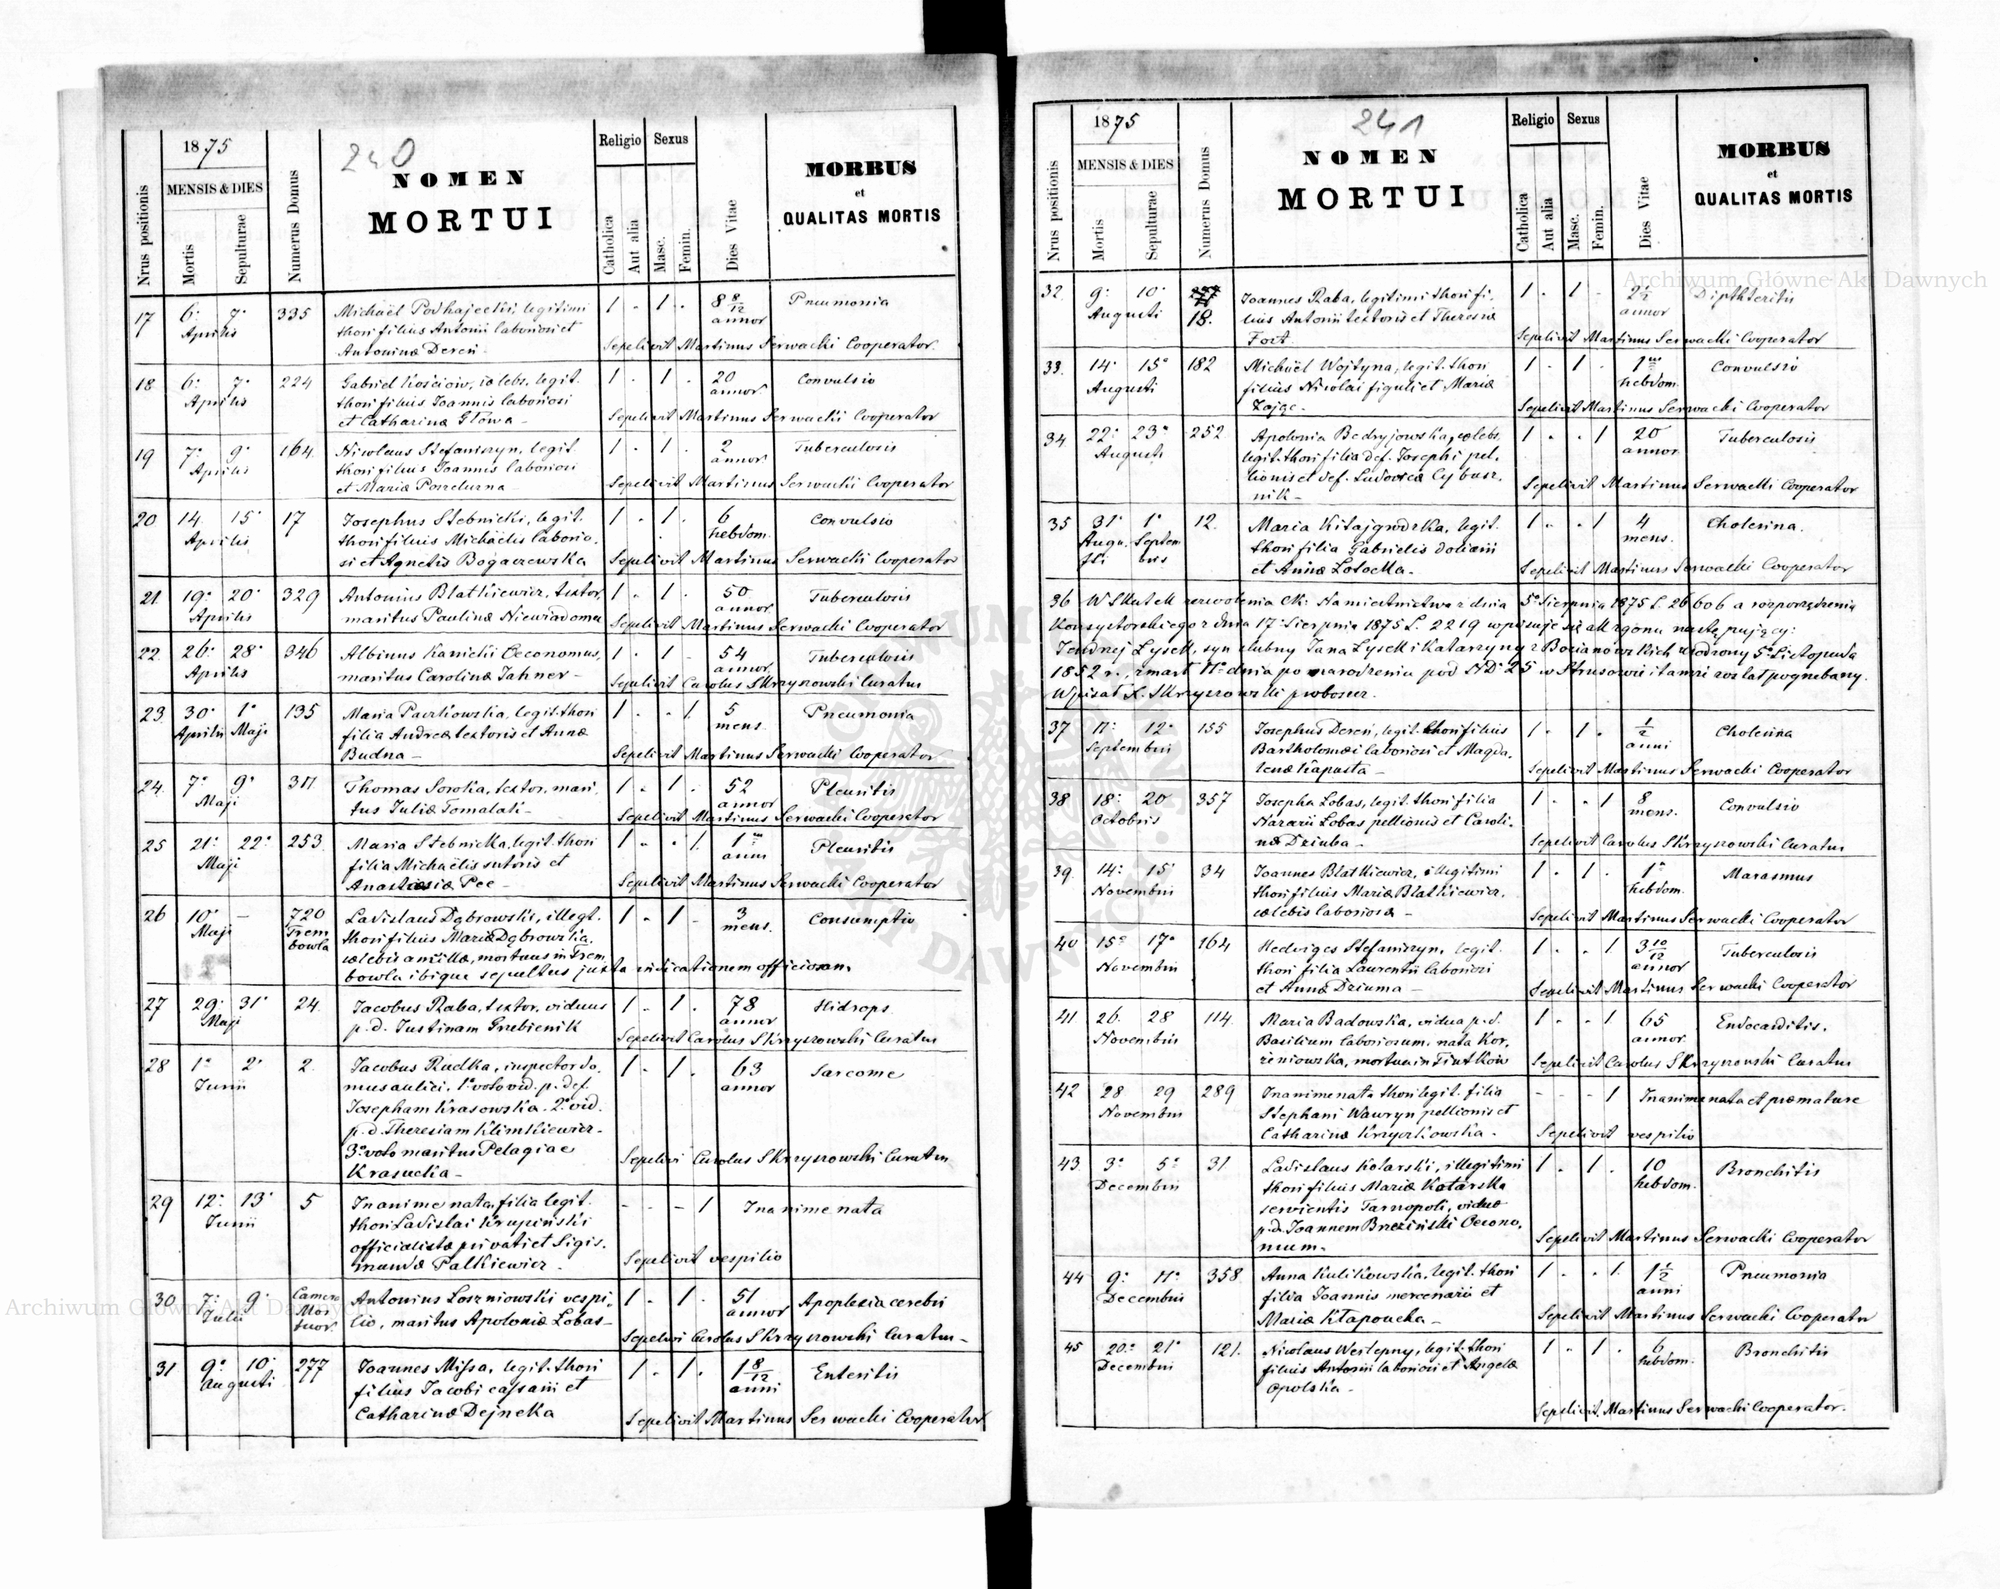 240
1875
Nrus positionis
MENSIS & DIES
Mortis
Sepulturae
Numerus Domus
NOMEN
MORTUI
Religio
Catholica
Aut alia
Sexus
Masc.
Femin.
Dies Vitae
MORBUS
et
QUALITAS MORTIS
17 6. 7. Aprilis 335 Michaël Podhajecki, legitimi 1 . 1 . 8 8/12 annor Pneumonia
thori filius Antonii laboriosi et
Antoninæ Dereń Sepelivit Martinus Serwacki Cooperator.
18 6. 7. Aprilis 224 Gabriel Kościów, cœlebs, legit. 1 . 1 . 20 annor. Convulsio
thori filius Joannis laboriosi
et Catharinæ Głowa - Sepelivit Martinus Serwacki Cooperator
19 7. 9. Aprilis 164. Nicolaus Stefaniszyn, legit. 1 . 1 . 2 annor. Tuberculosis
thori filius Joannis laboriosi
et Mariæ Sepelivit Martinus Serwacki Cooperator
20 14. 15. Aprilis 17 Josephus Stebnicki, legit. 1 . 1 . 6 hebdom. Convulsio
thori filius Michaëlis laborio-
si et Agnetis Bogaczewska Sepelivit Martinus Serwacki Cooperator
21. 19. 20. Aprilis 329 Antonius Blatkiewicz, textor, 1 . 1 . 50 annor. Tuberculosis
maritus Paulinæ Niewiadoma Sepelivit Martinus Serwacki Cooperator
22. 26. 28. Aprilis 346 Albinus Kanicki Œconomus, 1 . 1 - 54 annor. Tuberculosis
maritus Carolinæ Jahner - Sepelivit Carolus Skrzyszowski Curatus
23. 30. Aprilis 1. Maji 135 Maria Paczkowska, legit. thori 1 . . 1. 5 mens. Pneumonia
filia Andreæ textoris et Annæ
Budna - Sepelivit Martinus Serwacki Cooperator
24. 7. 9. Maji 311 Thomas Soroka, textor, mari- 1 . 1 . 52 annor Pleuritis
tus Juliæ Tomalak - Sepelivit Martinus Serwacki Cooperator
25 21. 22. Maji 253. Maria Stebnicka, legit. thori 1 . . 1. 1 anni Pleuritis
filia Michaëlis sutoris et
Anastasiæ Pec - Sepelivit Martinus Serwacki Cooperator
26 10. Maji - 720 Trembowla Ladislaus Dąbrowski, illegt. 1 . 1 . 3 mens. Consumptio
thori filius Mariæ Dąbrowska,
cœlebis ancillæ, mortuus in Trem-
bowla ibique sepultus juxta indicationem officiosam.
27 29. 31. Maji 24. Jacobus Raba, textor, viduus 1 . 1 . 78 annor Hidrops.
p.d. Justinam Grebienik Sepelivit Carolus Skrzyszowski Curatus
28 1. 2. Junii 2. Jacobus Rudka, inspector do- 1 . 1 . 63 annor Sarcome
mus aulici, 1º voto vid. p. def.
Josepham Krasowska. 2º vid.
p.d. Theresiam Klimkiewicz -
3º voto maritus Pelagiae
Krasucka - Sepelivi Carolus Skrzyszowski Curatus
29 12. 13. Junii 5 Inanime nata, filia legit. - - - 1 Inanime nata
thori Ladislai Krupiński
officialistæ privati et Sigis-
mundæ Palkiewicz - Sepelivit vespilio
30 7. 9. Julii Camera Mortuor. Antonius Loszniowski vespi- 1 . 1 . 51 annor Apoplexia cerebri
lio, maritus Apoloniæ Lobas - Sepelivi Carolus Skrzyszowski Curatus -
31 9. 10. Augusti 277 Joannes Missa, legit. thori 1 . 1 . 1 8/12 anni Enteritis
filius Jacobi et
Catharinæ Dejneka Sepelivit Martinus Serwacki Cooperator
241
1875
Nrus positionis
MENSIS & DIES
Mortis
Sepulturae
Numerus Domus
NOMEN
MORTUI
Religio
Catholica
Aut alia
Sexus
Masc.
Femin.
Dies Vitae
MORBUS
et
QUALITAS MORTIS
32. 9. 10. Augusti 18. Joannes Raba, legitimi thori fi- 1 . 1 . 2 1/2 annor Diphtheritis
lius Antonii textoris et Theresiæ
Fort Sepelivit Martinus Serwacki Cooperator
33. 14. 15. Augusti 182 Michaël Wojtyna, legit. thori 1 . 1 . 1 hebdom. Convulsio
filius Nicolai figuli et Mariæ
Zając - Sepelivit Martinus Serwacki Cooperator
34 22. 23. Augusti 252 Apolonia Bedryjowska, cœlebs, 1 . . 1 20 annor Tuberculosis
legit. thori filia def. Josephi pel-
lionis et def. Ludovicæ Cybusz-
nik - Sepelivit Martinus Serwacki Cooperator
35 31. Augusti 1. Septembris 12. Maria Kitajgrodzka, legit. 1 . . 1 4 mens. Cholerina.
thori filia Gabrielis doliarii
et Annæ Łotocka - Sepelivit Martinus Serwacki Cooperator
36 W skutek zezwolenia CK. Namiestnictwa z dnia 5. Sierpnia 1875 L. 26606 a rozporządzenia
Konsystorskiego z dnia 17. Sierpnia 1875 L. 2219 wpisuje się akt zgonu następujący:
Jendrzej Łysek, syn ślubny Jana Łysek i Katarzyny z Bocianowskich urodzony 5. Listopada
1852 r., zmarł 11. dnia po narodzeniu pod ND. 25 w Strusowie i tamże został pogrzebany.
Wpisał X. Skrzyszowski proboszcz.
37 11. 12. Septembris 155 Josephus Dereń, legit. thori filius 1 . 1 . 1/2 anni Cholerina
Bartholomæi laboriosi et Magda-
lenæ Kapusta - Sepelivit Martinus Serwacki Cooperator
38 18. 20 Octobris 357 Josepha Lobas, legit. thori filia 1 . . 1 8 mens. Convulsio
Nazarii Lobas pellionis et Caroli-
næ Dziuba - Sepelivit Carolus Skrzyszowski Curatus
39. 14. 15. Novembris 34 Joannes Blatkiewicz, illegitimi 1 . 1 . 1 hebdom. Marasmus
thori filius Mariæ Blatkiewicz,
cœlebis laboriosæ - Sepelivit Martinus Serwacki Cooperator
40 15. 17. Novembris 164 Hedviges Stefaniszyn, legit. 1 . . 1. 3 10/12 annor Tuberculosis
thori filia Laurentii laboriosi
et Annæ Dziuma - Sepelivit Martinus Serwacki Cooperator
41 26. 28 Novembris 114. Maria Badowska, vidua p.d. 1 . . 1. 65 annor. Endocarditis.
Basilium laboriosum, nata Kor-
żeniowska, mortua in Tiutków Sepelivit Carolus Skrzyszowski Curatus
42 28 29 Novembris 289 Inanime nata thori legit. filia - - - 1 Inanime nata et præmature
Stephani Wawryn pellionis et
Catharinæ Krzyczkowska. Sepelivit vespilio
43. 3. 5. Decembris 31 Ladislaus Kotarski, illegitimi 1 . 1 . 10 hebdom. Bronchitis
thori filius Mariæ Kotarska
servientis Tarnopoli, viduæ
p.d. Joannem Brzeziński Œcono-
mum. Sepelivit Martinus Serwacki Cooperator
44 9. 11. Decembris 358. Anna Kulikowska, legit. thori 1 . . 1. 1 1/2 anni Pneumonia
filia Joannis mercenarii et
Mariæ Kłapoucha - Sepelivit Martinus Serwacki Cooperator
45 20. 21. Decembris 121. Nicolaus Westepny, legit. thori 1 . 1 . 6 hebdom. Bronchitis
filius Antonii laboriosi et Angelæ
Opolska - Sepelivit Martinus Serwacki Cooperator.
Archiwum Główne Akt Dawnych
Archiwum Główne Akt Dawnych